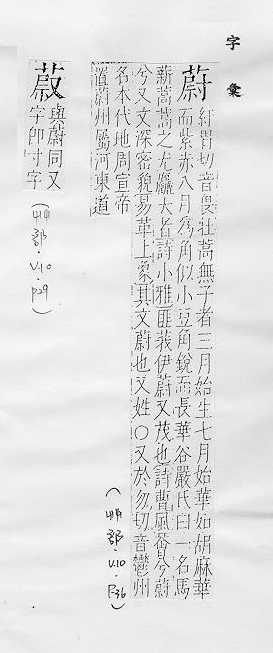 字彙
蔚
紆胃切音畏牡蒿無子者三月始生七月始華如胡麻華
而紫赤八月爲角似小豆角銳而長華谷嚴氏曰一名馬
薪蒿蒿之尤麤大者詩小雅匪莪伊蔚又茂也詩曹風薈兮蔚
兮又文深密貌易革上象其文蔚也又姓○又於勿切音鬱州
名本代地周宣帝
置蔚州屬河東道
(艸部・V.10・P36)
與蔚同又
字即寸字
(艸部・V.10・P29)